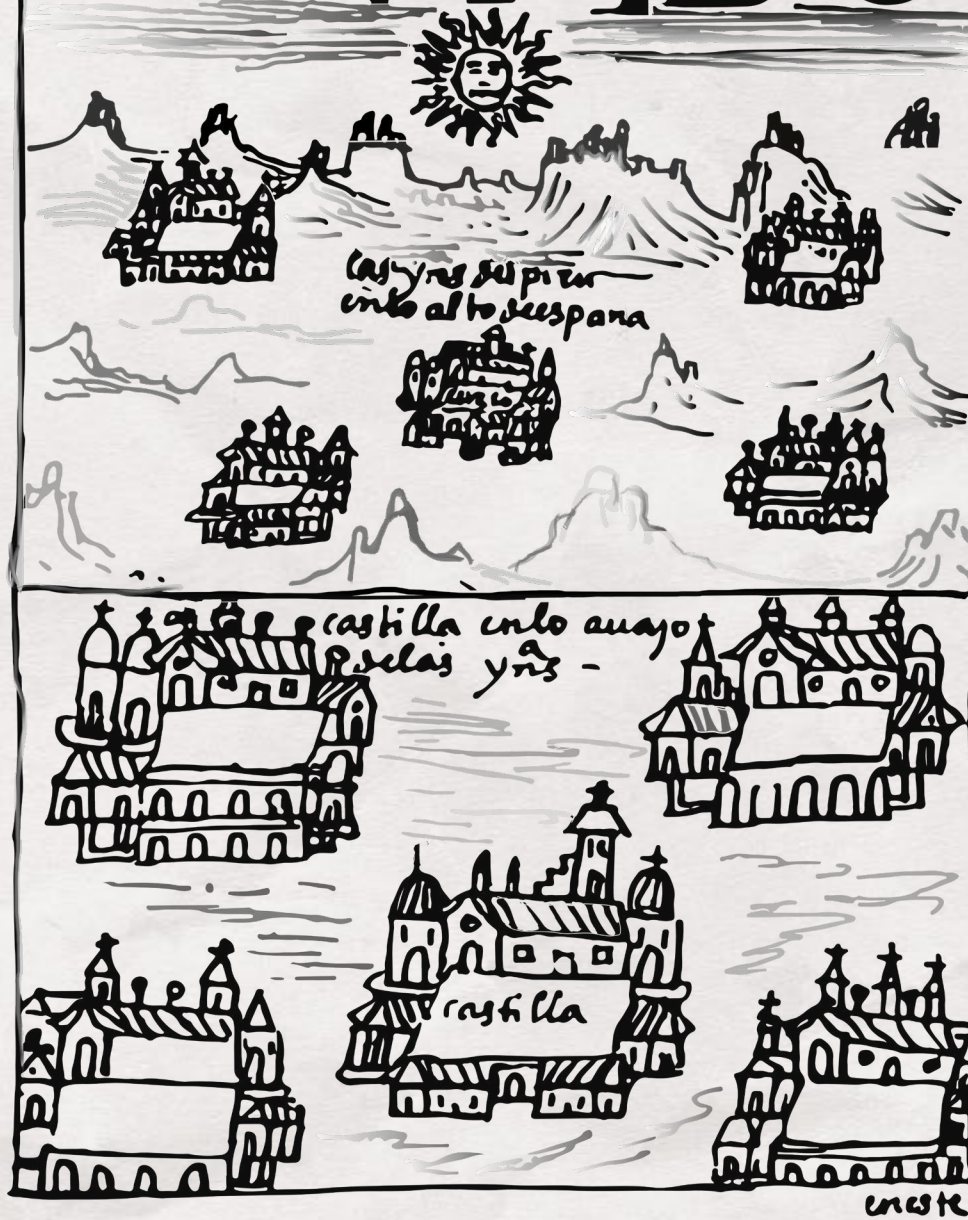 las yns del piru
enlo alto deespana
cuzco
castilla enlo auajo
delas yns -
castilla